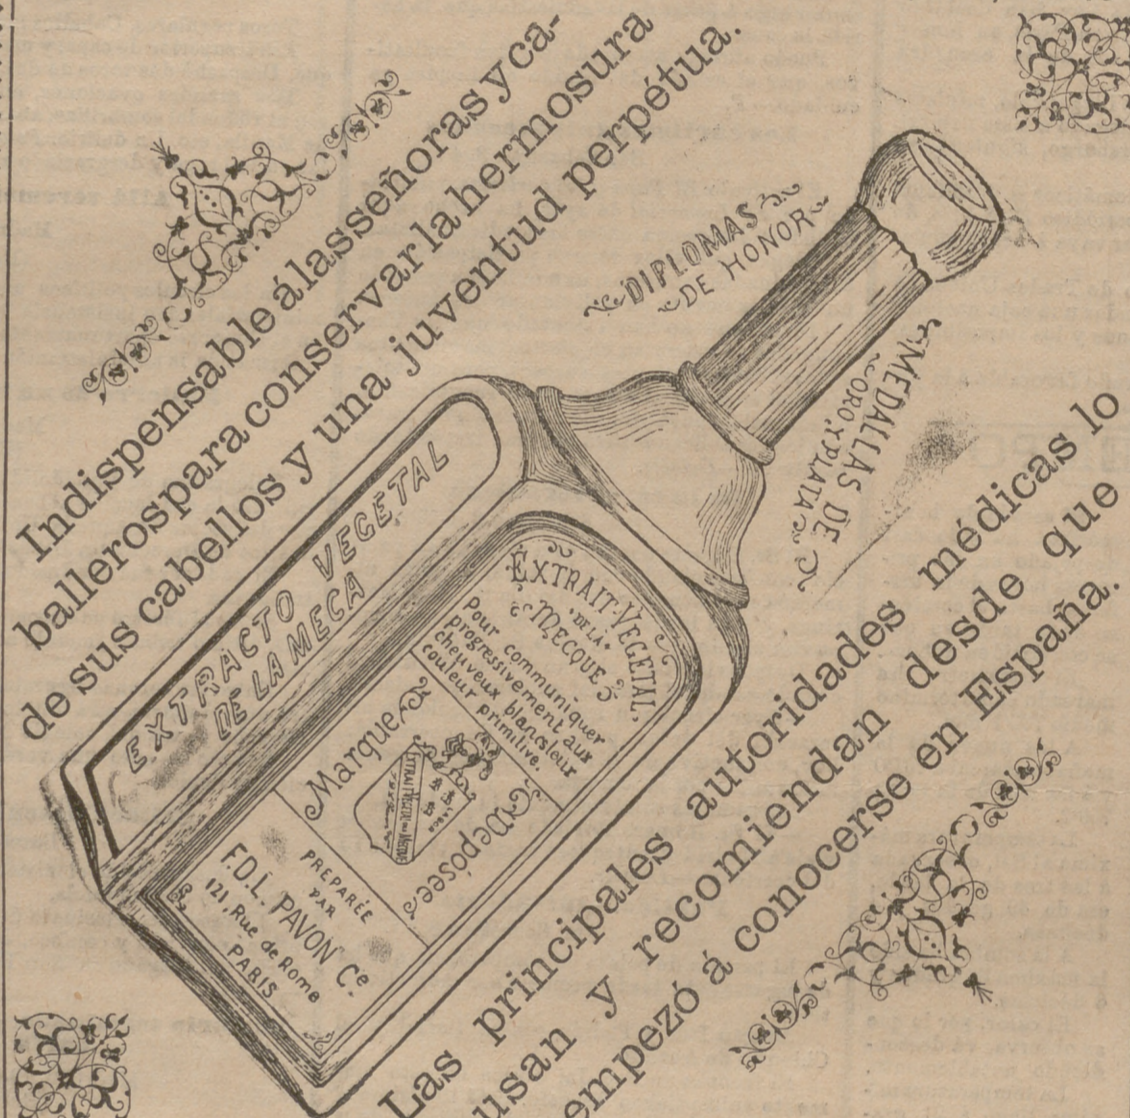 Indispensable á las señoras y ca-
balleros para conservar la hermosura
de sus cabellos y una juventud perpétua.
DIPLOMAS
DE HONOR
MEDALLAS DE
ORO, Y PLATA
EXTRACTO VEGETAL
DE LA MECA
EXTRAIT-VEGETAL,
DE LA
MECQUE
Pour communiquer
progressivement aux
cheuveux blancs leur
couleur primitive.
Marque Déposée
PREPARÉE
PAR
F.D.L. PAVON Ce.
121, Rue de Rome
PARIS
Las principales autoridades médicas lo
usan y recomiendan desde que
empezó á conocerse en España.